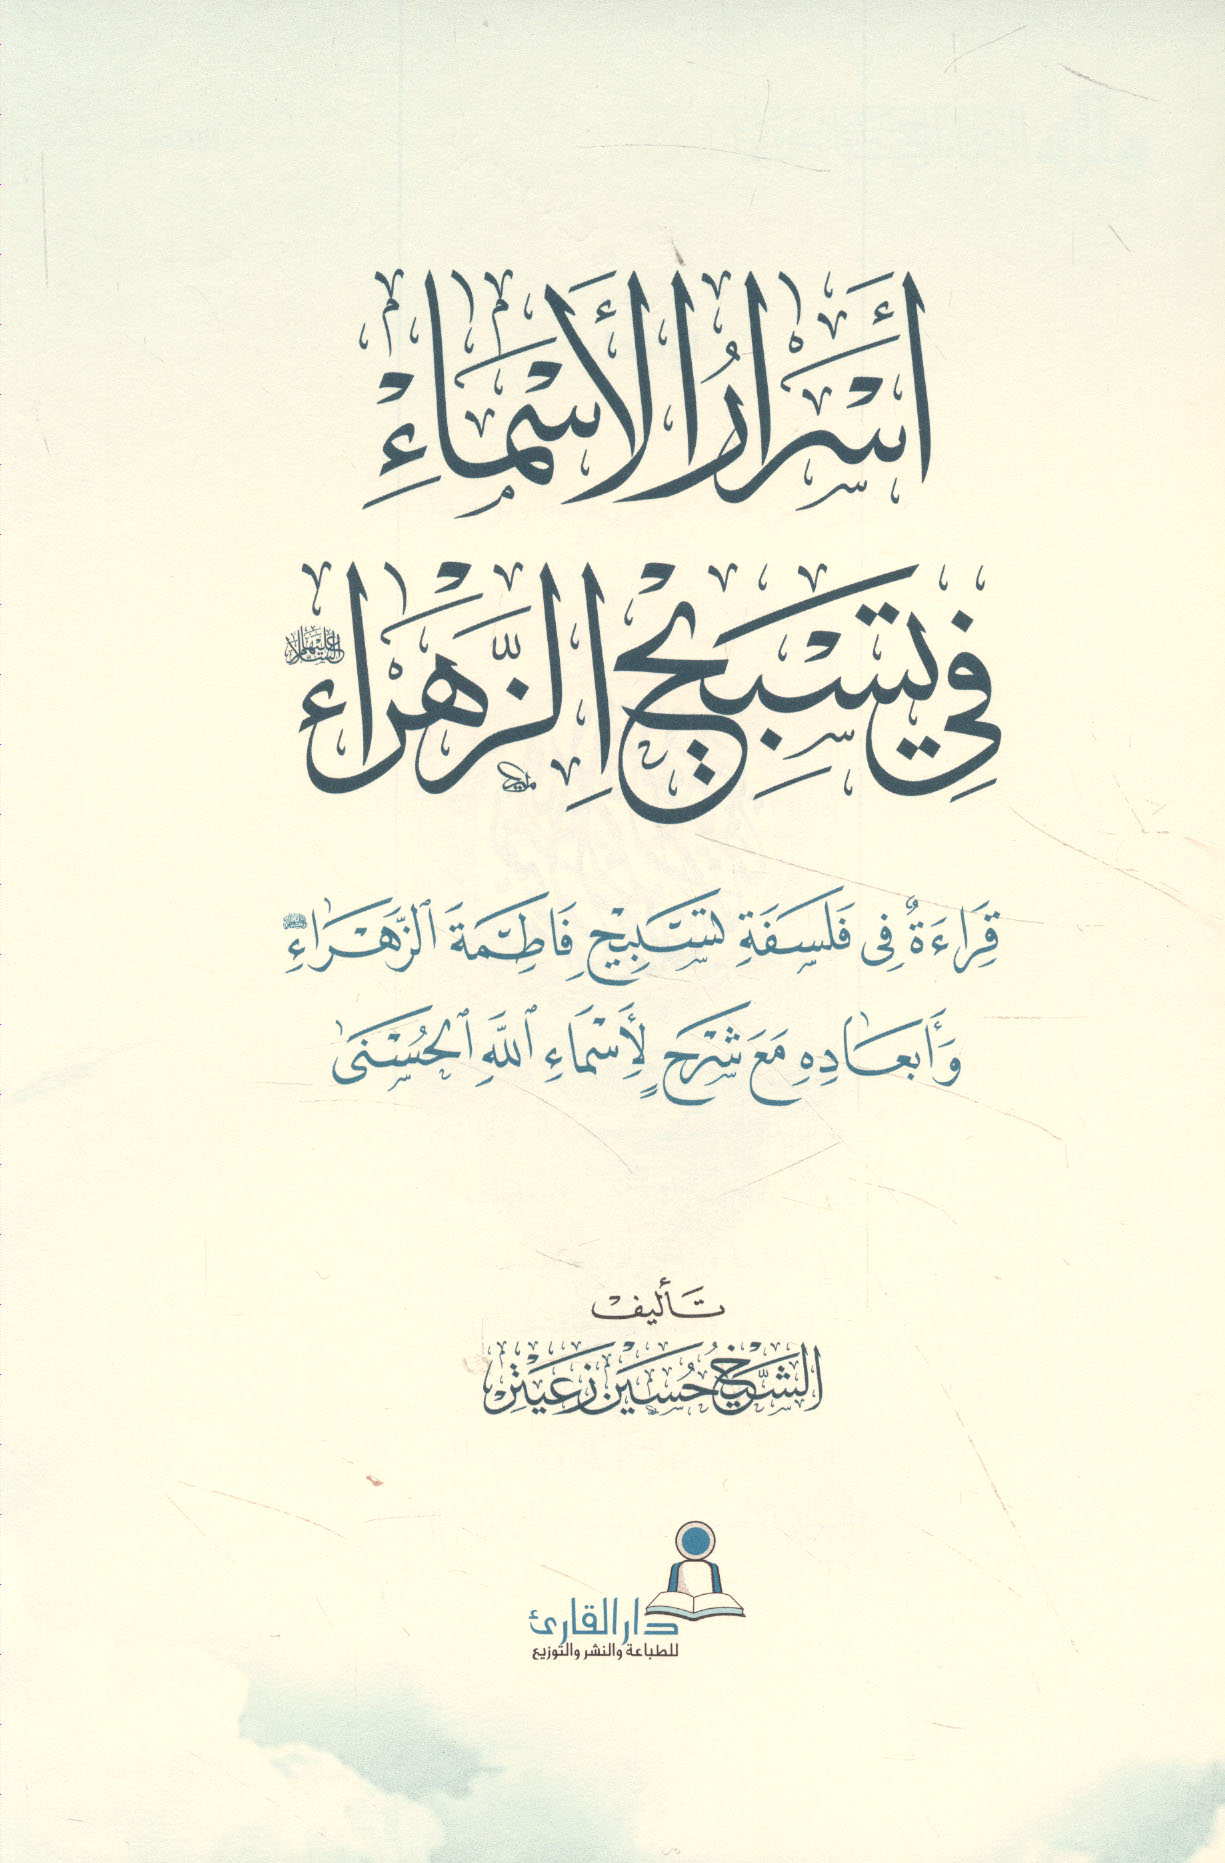 أَسْرَارُ الْأَسْمَاءِ
فِي تَسْبِيْحِ الزَّهْرَاء عليها السلام
قِرَاءَةٌ فِي فَلْسَفَةِ تَسْبِيْحِ فَاطِمَةَ ٱلزَّهْرَاءِ
وَأَبعَادِهِ مَعَ شَرْحٍ لِأَسْمَاءِ ٱللَّهِ ٱلْحُسْنَىٰ
تأليف
الشَّيْخ حُسَيْن زعَيْتر
دار القارئ
للطباعة والنشر والتوزيع